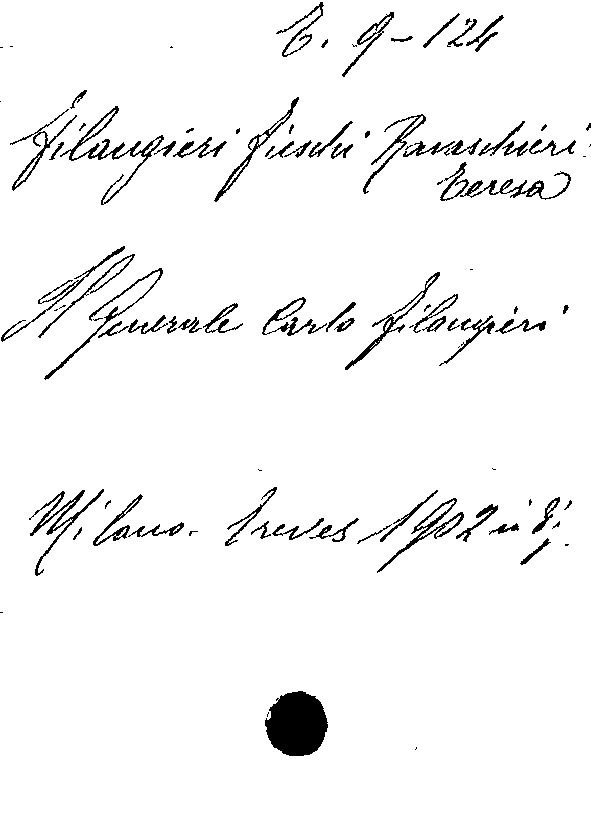 E. 9-124
Filangieri Fieschi Ravaschieri
Teresa
Il Generale Carlo Filangieri
Milano. Treves 1902 in 8°